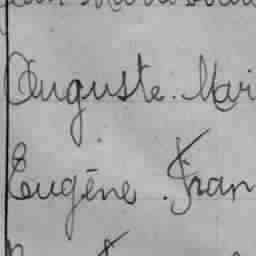 Auguste. Mari
Eugène. Fran